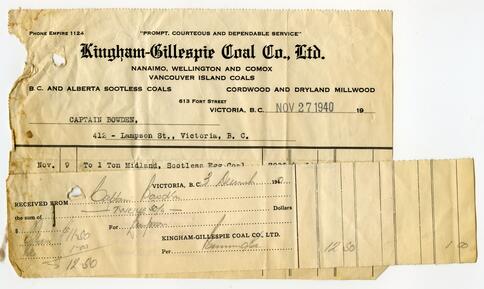 PHONE EMPIRE 1124
"PROMPT, COURTEOUS AND DEPENDABLE SERVICE"
Kingham-Gillespie Coal Co., Ltd.
NANAIMO, WELLINGTON AND COMOX
VANCOUVER ISLAND COALS
B.C. AND ALBERTA SOOTLESS COALS CORDWOOD AND DRYLAND MILLWOOD
613 FORT STREET
VICTORIA, B.C. NOV 27 1940 19
CAPTAIN BOWDEN,
412 - Lampson St., Victoria, B. C.
Nov. 9 To 1 Ton Midland, Sootless Egg Coal
VICTORIA, B.C. 3 194
RECEIVED FROM
the sum of Dollars
$ For
KINGHAM-GILLESPIE COAL CO. LTD.
Per
12 50 1 00
12 50